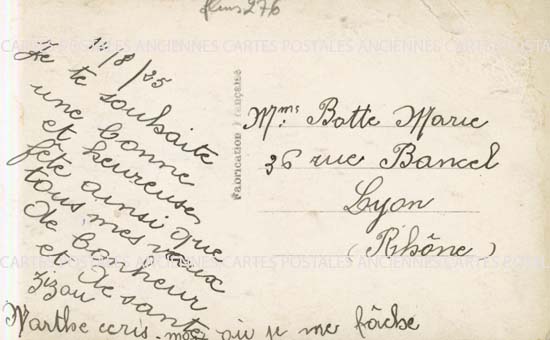 fleurs 276
CARTES POSTALES ANCIENNES CARTES POSTALES ANCIENNES CARTES POSTALES
/8/35
Je te souhaite
une bonne
et heureuse
fête ainsi que
tous mes vœux
de bonheur
et de santé
Zizou
Marthe ecris-moi ou je me fâche
Fabrication Française
Mms Botte Marie
36 rue Bancel
Lyon
(Rhône)
CARTES POSTALES ANCIENNES CARTES POSTALES ANCIENNES CARTES POSTALES